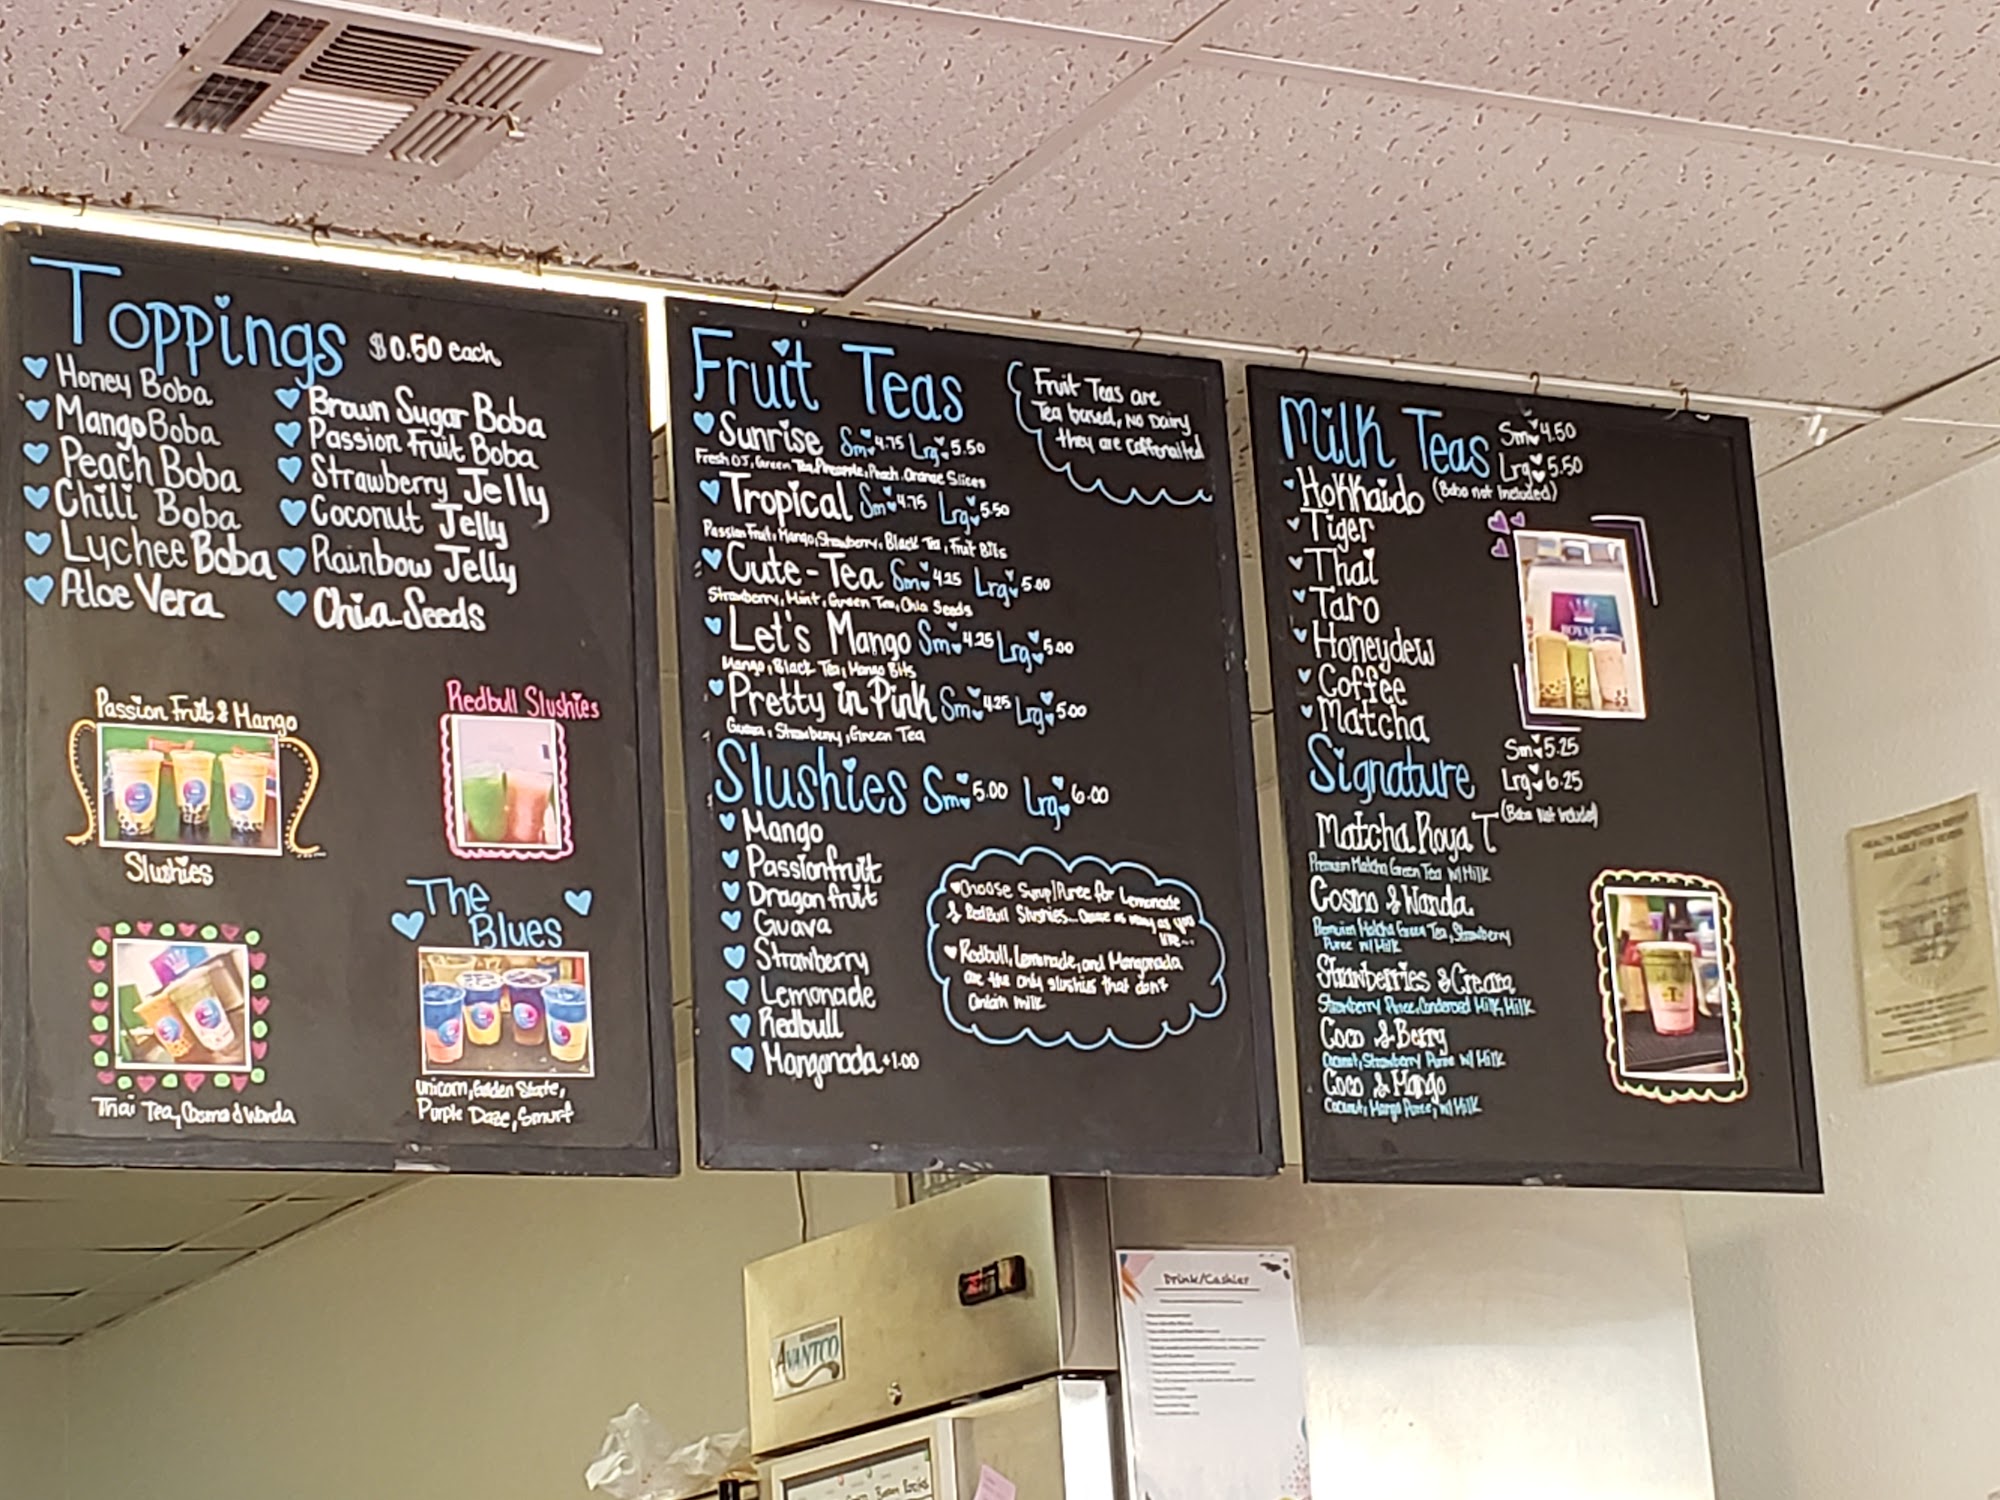 Toppings $0.50 each
Honey Boba
Mango Boba
Peach Boba
Chili Boba
Lychee Boba
Aloe Vera
Brown Sugar Boba
Passion Fruit Boba
Strawberry Jelly
Coconut Jelly
Rainbow Jelly
Chia Seeds
Passion Fruit & Mango
Slushies
Redbull Slushies
Thai Tea, Cosmo & Wanda
The
Blues
Unicorn, Golden State,
Purple Daze, Smurf
Fruit Teas
Fruit Teas are
Tea based, No Dairy
they are caffeinated
Sunrise Sm 4.75 Lrg 5.50
Fresh OJ, Green Tea, Pineapple, Peach, Orange Slices
Tropical Sm 4.75 Lrg 5.50
Passion Fruit, Mango, Strawberry, Black Tea, Fruit Bits
Cute-Tea Sm 4.25 Lrg 5.00
Strawberry, Mint, Green Tea, Chia Seeds
Let's Mango Sm 4.25 Lrg 5.00
Mango, Black Tea, Mango Bits
Pretty in Pink Sm 4.25 Lrg 5.00
Guava, Strawberry, Green Tea
Slushies Sm 5.00 Lrg 6.00
Mango
Passionfruit
Dragonfruit
Guava
Strawberry
Lemonade
Redbull
Mangonada +1.00
Choose Syrup/Puree for Lemonade
& RedBull Slushies... Choose as many as you
like~
Redbull, Lemonade, and Mangonada
are the only slushies that don't
contain milk
Milk Teas Sm 4.50
Lrg 5.50
(Boba not Included)
Hokkaido
Tiger
Thai
Taro
Honeydew
Coffee
Matcha
Signature Sm 5.25
Lrg 6.25
(Boba Not Included)
Matcha Roya T
Premuim Matcha Green Tea w/ Milk
Cosmo & Wanda
Premuim Matcha Green Tea, Strawberry
Puree w/ Milk
Strawberries & Cream
Strawberry Puree, Condensed Milk, Milk
Coco & Berry
Coconut, Strawberry Puree w/ Milk
Coco & Mango
Coconut, Mango Puree, w/ Milk
ROYAL T
HEALTH INSPECTION REPORT
AVAILABLE FOR REVIEW
AVANTCO
Drink/Cashier